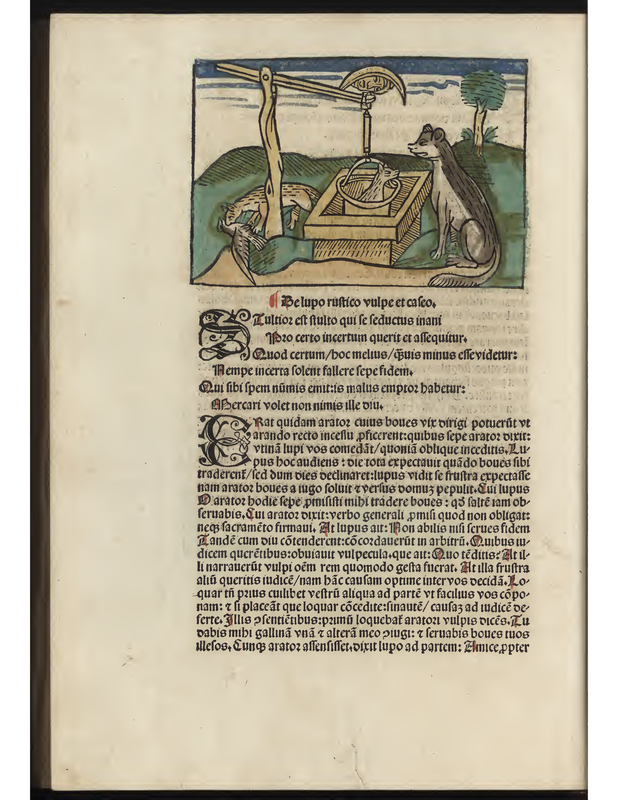 ¶ De lupo rustico vulpe et caseo.
Stultior est stulto qui se seductus inani
Pro certo incertum querit et assequitur.
Quod certum/hoc melius/q̃uis minus esse videtur:
Nempe incerta solent fallere sepe fidem.
Qui sibi spem nũmis emit:is malus emptor habetur:
Mercari volet non nimis ille diu.
ERat quidam arator cuius boues vix dirigi potuerũt vt
arando recto incessu ꝓficerent:quibus sepe arator dixit:
vtinã lupi vos comedãt/quoniã oblique inceditis. Lu-
pus hoc audiens: die tota expectauit quãdo boues sibi
traderent̃/sed dum dies declinaret:lupus vidit se frustra expectasse
nam arator boues a iugo soluit ⁊ versus domuꝫ pepulit. Cui lupus
O arator hodie sepe ꝓmisisti mihi tradere boues: qđ saltẽ iam ob-
seruabis. Cui arator dixit:verbo generali ꝓmisi quod non obligat:
neqꝫ sacramẽto firmaui. At lupus ait: Non abibis nisi serues fidem
Tandẽ cum diu cõtenderent:cõcordauerũt in arbitrũ. Quibus iu-
dicem querẽtibus:obuiauit vulpecula.que ait: Quo tẽditis? At il-
li narrauerũt vulpi oẽm rem quomodo gesta fuerat. At illa frustra
aliũ queritis iudicẽ/nam hãc causam optime inter vos decidã. Lo-
quar tñ prius cuilibet vestrũ aliqua ad partẽ vt facilius vos cõpo-
nam: ⁊ si placeãt que loquar cõcedite:sinautẽ/ causaꝫ ad iudicẽ de-
ferte. Illis ꝯsentiẽtibus:primũ loquebat̃ aratori vulpis dicẽs. Tu
dabis mihi gallinã vnã ⁊ alterã meo ꝯiugi: ⁊ seruabis boues tuos
illesos. Cunqꝫ arator assensisset.dixit lupo ad partem: Amice,ꝓpter